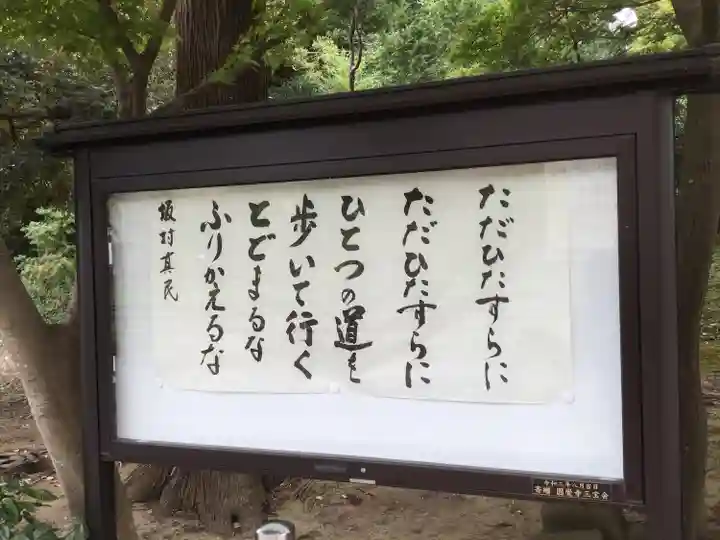 ただひたすらに
ただひたすらに
ひとつの道を
歩いて行く
とどまるな
ふりかえるな
坂村真民
寄贈 圓覺寺三宝会